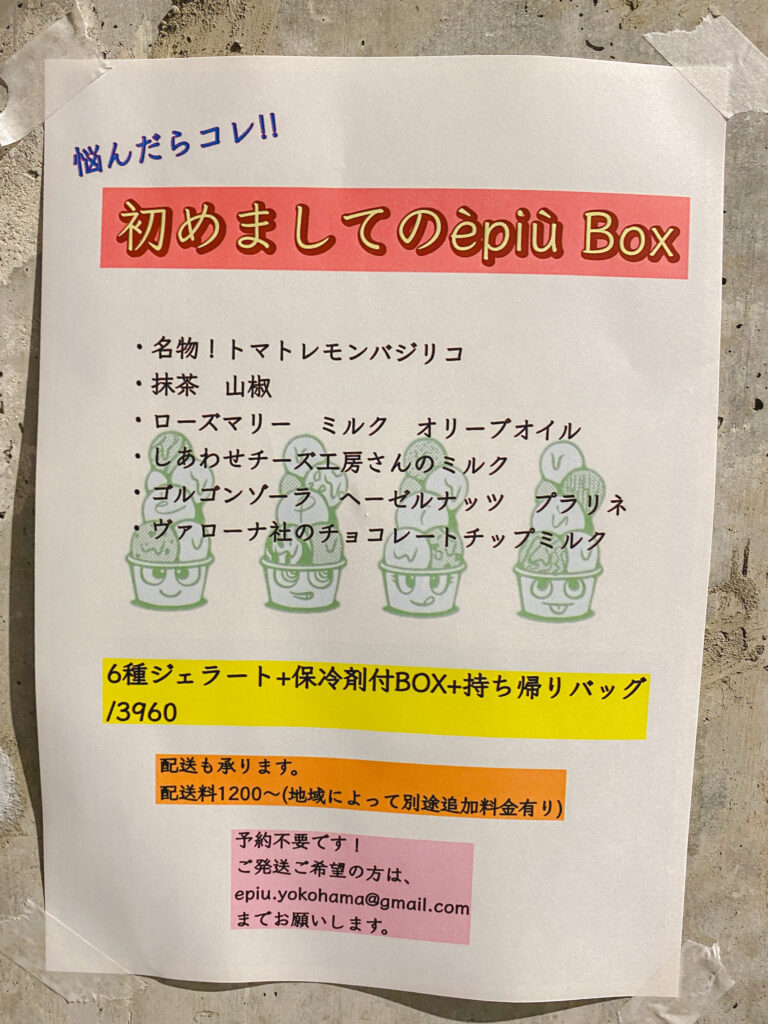 悩んだらコレ!!
初めましてのèpiù Box
・名物！トマトレモンバジリコ
・抹茶　山椒
・ローズマリー　ミルク　オリーブオイル
・しあわせチーズ工房さんのミルク
・ゴルゴンゾーラ　ヘーゼルナッツ　プラリネ
・ヴァローナ社のチョコレートチップミルク
6種ジェラート+保冷剤付BOX+持ち帰りバッグ
/3960
配送も承ります。
配送料1200〜(地域によって別途追加料金有り)
予約不要です！
ご発送ご希望の方は、
epiu.yokohama@gmail.com
までお願いします。